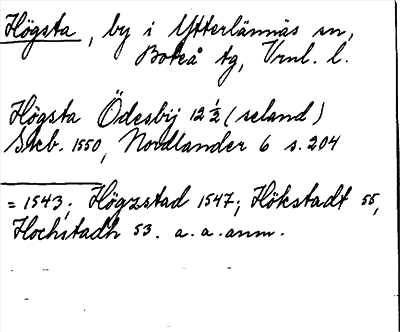 Högsta, by i Ytterlännäs sn,
Boteå tg, Vrnl. l.
Högsta Ödesbij 12 ½ (seland)
Skeb. 1550, Nordlander 6 s. 204
= 1543; Högzstad 1547; Hökstadt 55,
Hochstadh 53. a. a. anm.